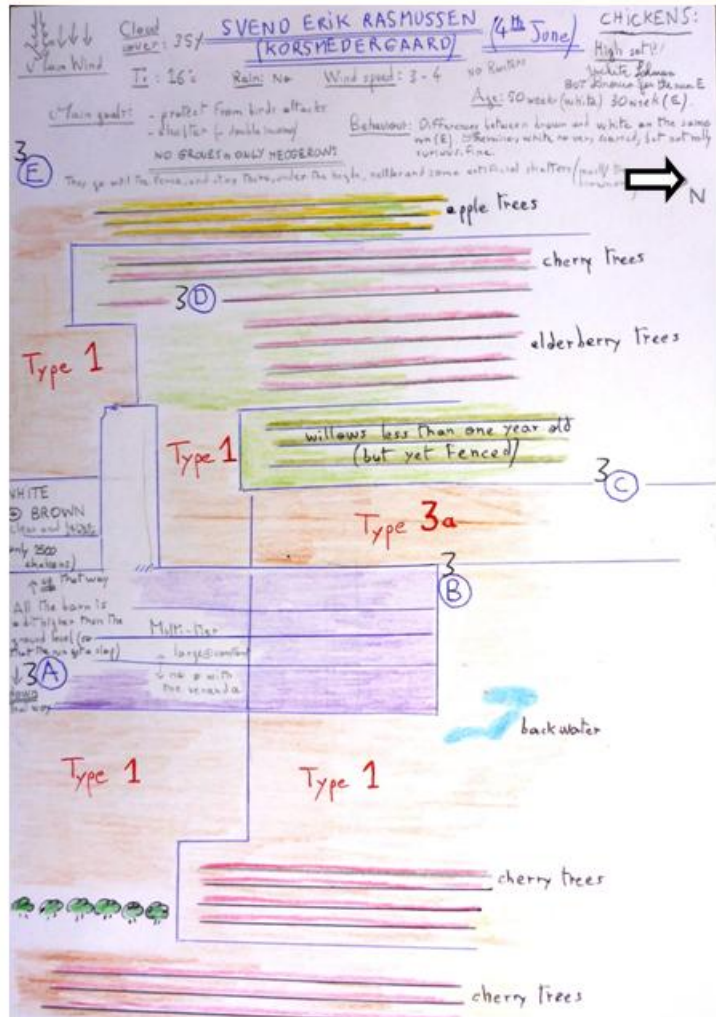 Main Wind
Cloud cover: 35%
SVEND ERIK RASMUSSEN
(KORSMEDERGAARD)
(4th June)
CHICKENS:
High set
T°: 16°c
Rain: No
Wind speed: 3-4
NO
white
BUT for the run E
Age: 50 week (white) 30 week (E)
Main goals: - protect from birds attacks
- shelter (+ double income)
NO GROVES → ONLY HEDGEROWS
Behaviour: Difference between brown and white on the same run (E). Otherwise, white no very scared, but not really curious. Fine.
They go until the fence, and stay there, under the hedge, nettles and some artificial shelters
3 E
N
apple trees
cherry trees
3 D
elderberry trees
Type 1
Type 1
willows less than one year old
(but yet fenced)
3 C
Type 3a
WHITE
BROWN
only 2500
chickens)
↑ up that way
3 B
All the barn is
a bit higher than the
ground level (so
that the run get a slop)
Multi-tier
large
with
the veranda
3 A
↓ down
that way
backwater
Type 1
Type 1
cherry trees
cherry trees